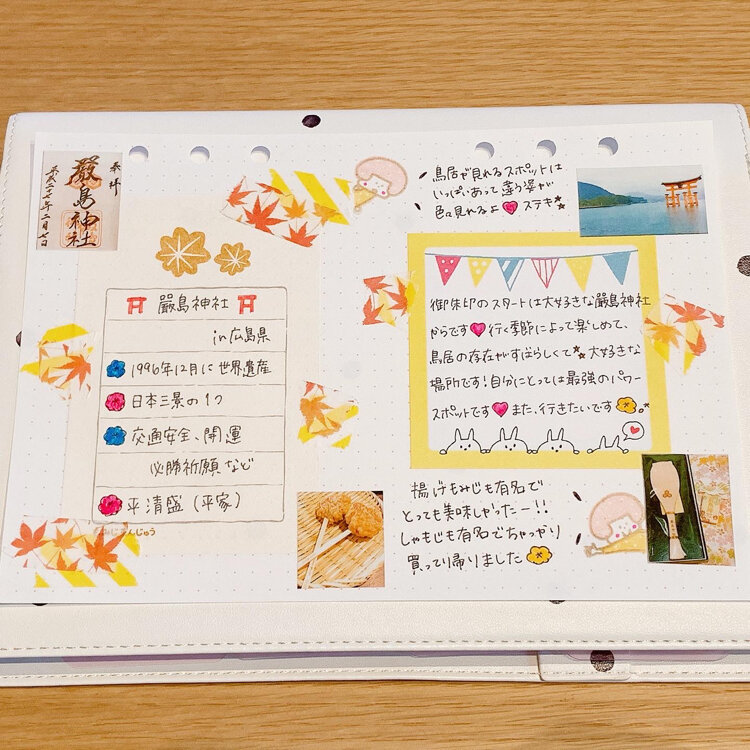 奉拝
嚴島神社
平成二十七年二月七日
嚴島神社
in広島県
1996年12月に世界遺産
日本三景の1つ
交通安全、開運
必勝祈願など
平清盛（平家）
みじまんじゅう
鳥居が見れるスポットは
いっぱいあって違う姿が
色々見れるよ♥ステキ
御朱印のスタートは大好きな嚴島神社
からです♥行く季節によって楽しめて、
鳥居の存在がすばらしくて大好きな
場所です！自分にとっては最強のパワー
スポットです♥また、行きたいです
揚げもみじも有名で
とっても美味しかったー!!
しゃもじも有名でちゃっかり
買って帰りました